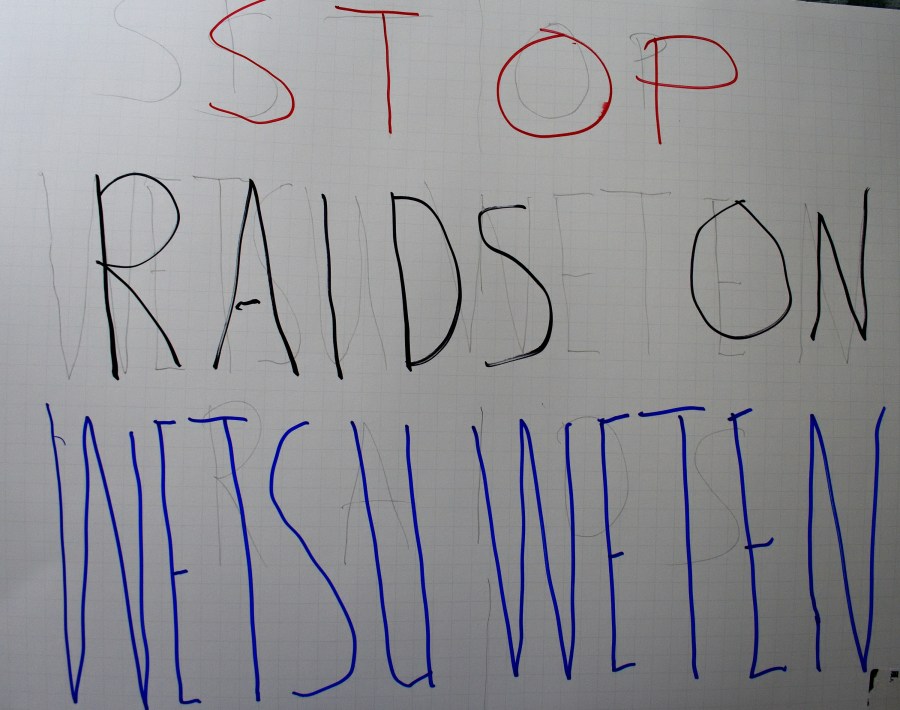 STOP
RAIDS ON
WETSU WETEN